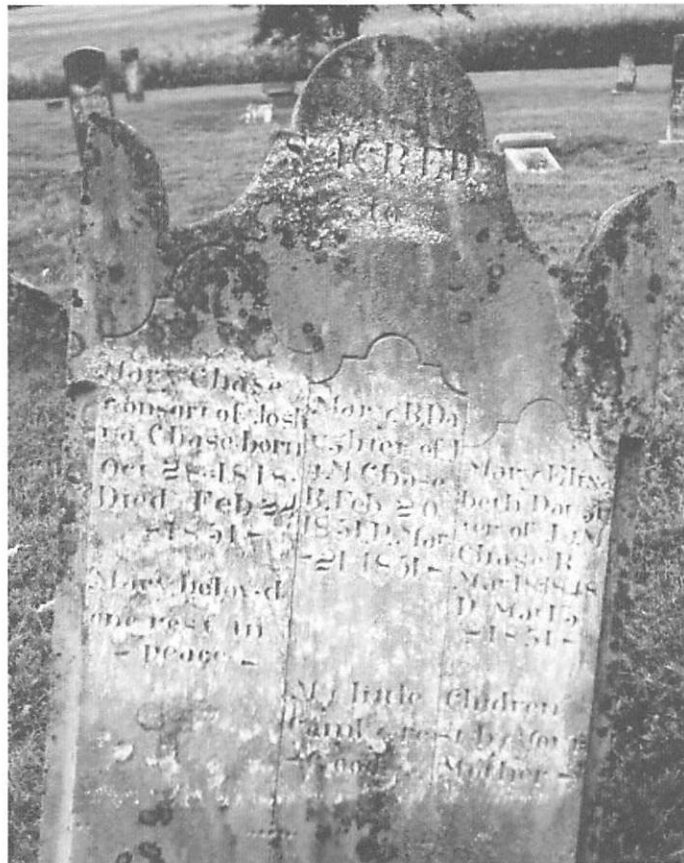 SACRED
to
Mary Chase
consort of Josh
ua Chase born
Oct 28. 1818.
Died Feb 22
- 1851 -
Mary belov.d
one rest in
- peace -
Mary B. Da
ughter of J
& M Chase
B. Feb 20
1851. D. Mar
- 21 1851 -
My little
Lambs rest
Mary Eliza
beth Daugh
ter of J. & M
Chase B
Mar 18 1848
D. Mar
- 1851 -
Children
by Your
Mother -